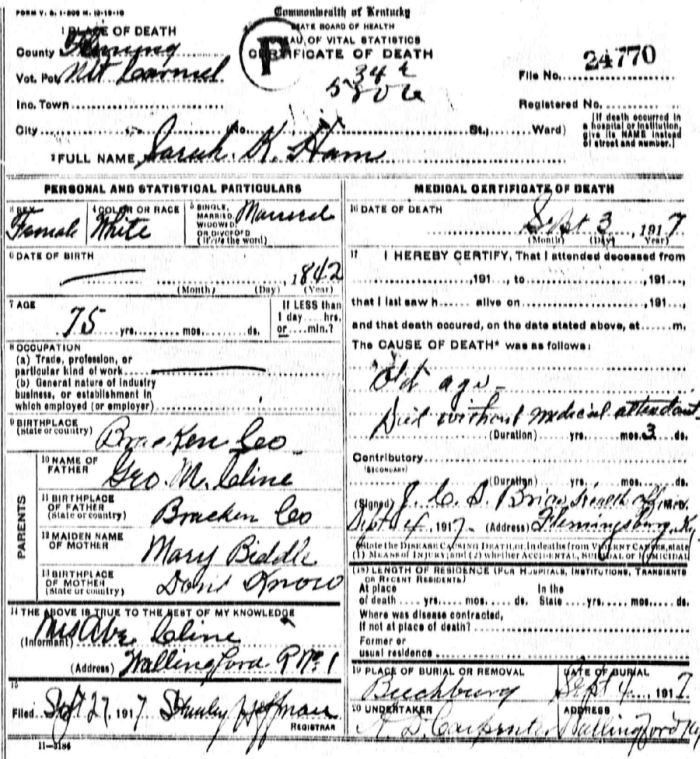 FORM V. S. 1-50M M. 12-19-10
Commonwealth of Kentucky
STATE BOARD OF HEALTH
BUREAU OF VITAL STATISTICS
CERTIFICATE OF DEATH
1 PLACE OF DEATH
County Fleming
Vot. Pct. Mt Carmel
Inc. Town
City No. St., Ward)
P
File No. 24770
Registered No.
[If death occurred in a hospital or institution, give its NAME instead of street and number.]
2 FULL NAME Sarah K. Ham
PERSONAL AND STATISTICAL PARTICULARS
3 SEX Female
4 COLOR OR RACE White
5 SINGLE, MARRIED, WIDOWED OR DIVORCED (Write the word) Married
6 DATE OF BIRTH
1842
(Month) (Day) (Year)
7 AGE
75 yrs. mos. ds.
If LESS than 1 day hrs. or min.?
8 OCCUPATION
(a) Trade, profession, or particular kind of work
(b) General nature of industry business, or establishment in which employed (or employer)
9 BIRTHPLACE (State or country) Bracken Co
PARENTS
10 NAME OF FATHER Geo. M. Cline
11 BIRTHPLACE OF FATHER (State or country) Bracken Co
12 MAIDEN NAME OF MOTHER Mary Biddle
13 BIRTHPLACE OF MOTHER (State or country) Dont Know
14 THE ABOVE IS TRUE TO THE BEST OF MY KNOWLEDGE
(Informant) Mrs Abe Cline
(Address) Wallingford R No 1
15
Filed Sept 27, 1917 Stanley Hoffman
REGISTRAR
11-3184
MEDICAL CERTIFICATE OF DEATH
16 DATE OF DEATH
Sept 3, 1917
(Month) (Day) (Year)
17 I HEREBY CERTIFY, That I attended deceased from
, 191 , to , 191 ,
that I last saw h alive on , 191 ,
and that death occured, on the date stated above, at m.
The CAUSE OF DEATH* was as follows:
Old age
Died without medical attendant
(Duration) yrs. mos. 3 ds.
Contributory
(SECONDARY)
(Duration) yrs. mos. ds.
(Signed) J. C. S.
Sept 4, 1917 (Address) Flemingsburg, Ky
*State the DISEASE CAUSING DEATH, or, in deaths from VIOLENT CAUSES, state (1) MEANS OF INJURY; and (2) whether ACCIDENTAL, SUICIDAL or HOMICIDAL
18 LENGTH OF RESIDENCE (FOR HOSPITALS, INSTITUTIONS, TRANSIENTS OR RECENT RESIDENTS)
At place of death yrs. mos. ds. In the State yrs. mos. ds.
Where was disease contracted, If not at place of death?
Former or usual residence
19 PLACE OF BURIAL OR REMOVAL Beechburg
DATE OF BURIAL Sept 4, 1917
20 UNDERTAKER N. D. Carpenter
ADDRESS Wallingford Ky